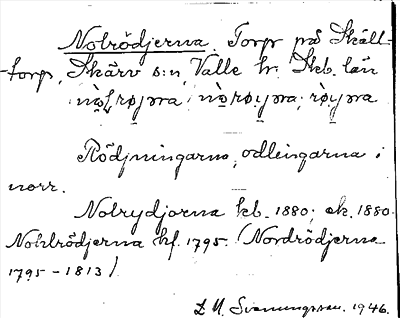 Nolrödjerna. Torp på Skäll-
torp, Skärv s:n, Valle hd. Skb. län
Rödjningarna, odlingarna i
norr.
Nolrydjorna kb. 1880; ek. 1880
Nohlrödjerna hf. 1795. (Nordrödjerna
1795-1813)
L M. Svanungsson. 1946.